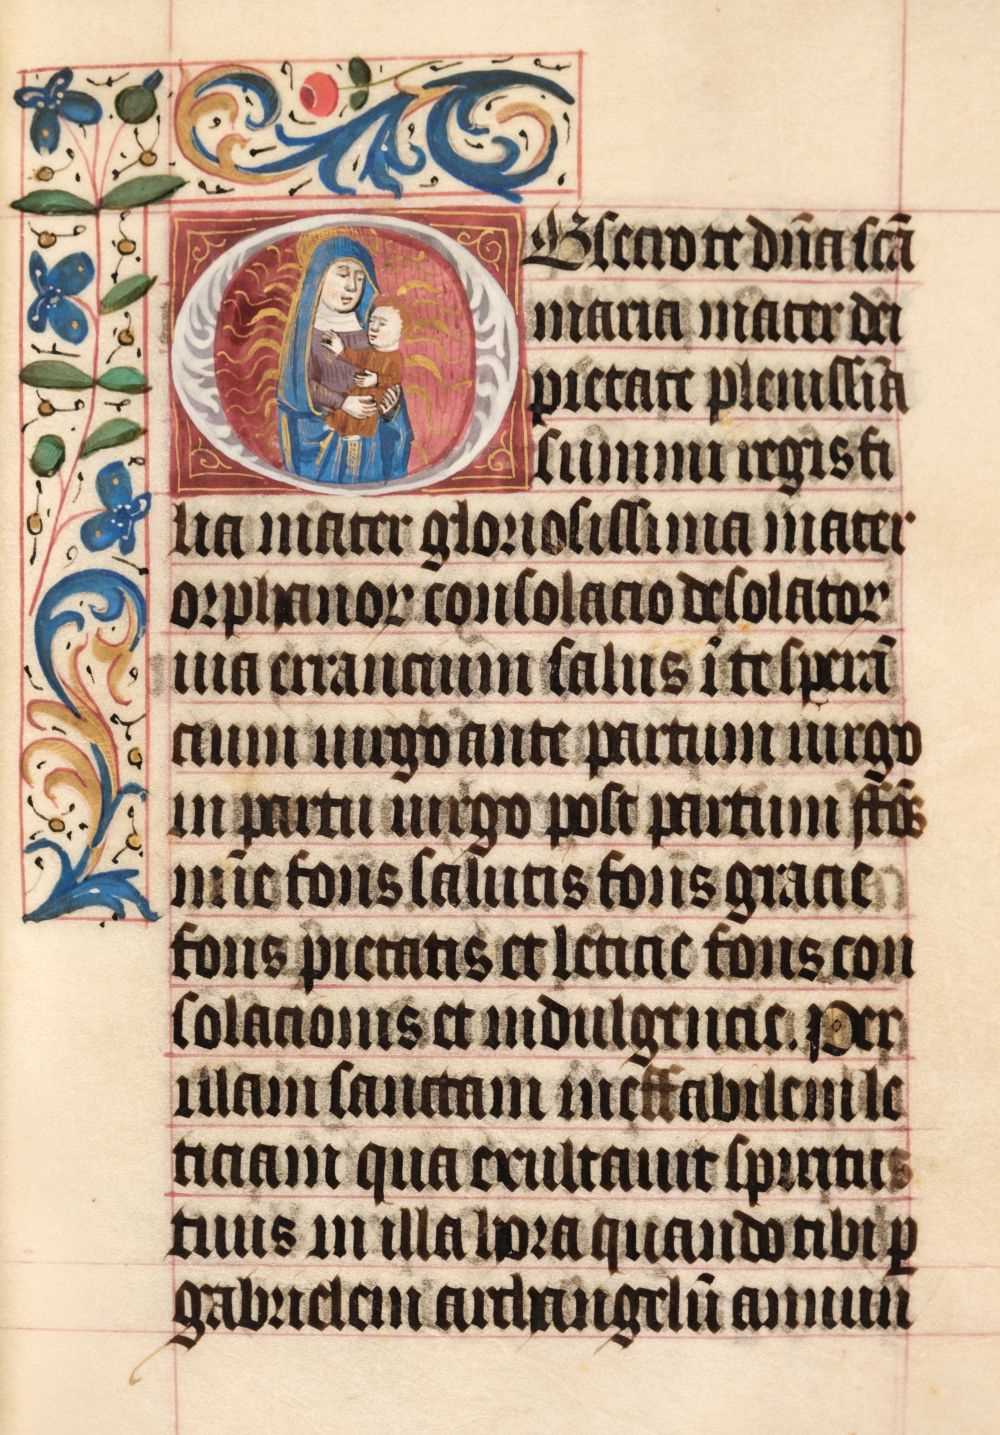 OBsecro te dn̄a sc̄a
maria mater dei
pietate plenissīa
summi regis fi
lia mater gloriosissima mater
orphanoꝝ consolacio desolatoꝝ
uia errancium salus ī te sperā
cium uirgo ante partum uirgo
in partu uirgo post partum
mīe fons salutis fons gracie
fons pietatis et leticie fons con
solacionis et indulgencie. Per
illam sanctam ineffabilem le
ticiam qua exultauit spiritus
tuus in illa hora quando tibi ꝑ
gabrielem archangelū